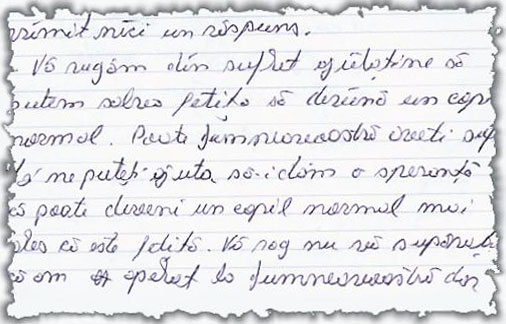 primit nici un răspuns.
Vă rugăm din suflet ajutaține să
putem salva fetița să devină un copi
normal. Poate Dumneavoastră aveti suf
să ne puteți ajuta să-i dăm o speranță
că poate deveni un copil normal mai
ales că este fetiță. Vă rog nu vă supărați
că am apelat la Dumneavoastră din